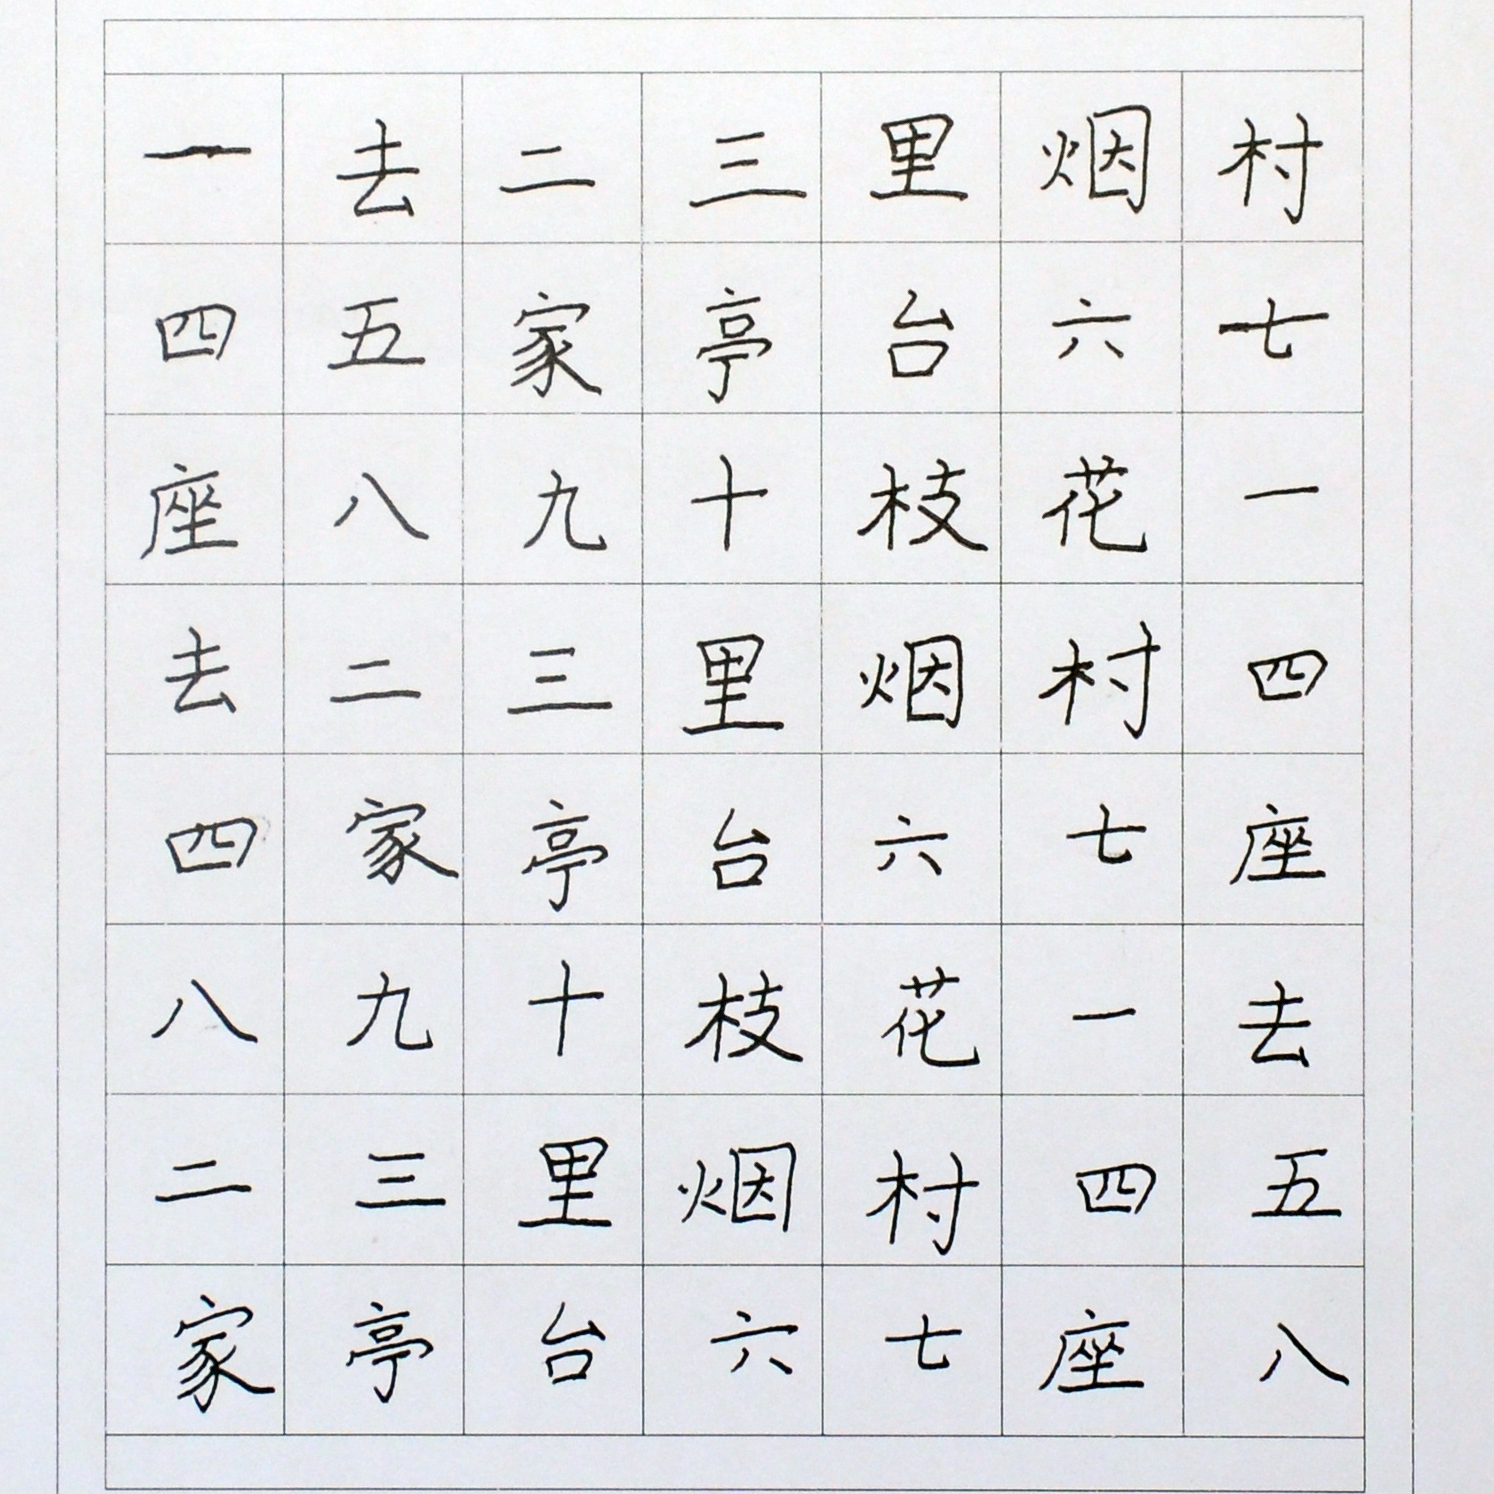 一去二三里烟村
四五家亭台六七
座八九十枝花一
去二三里烟村四
四家亭台六七座
八九十枝花一去
二三里烟村四五
家亭台六七座八